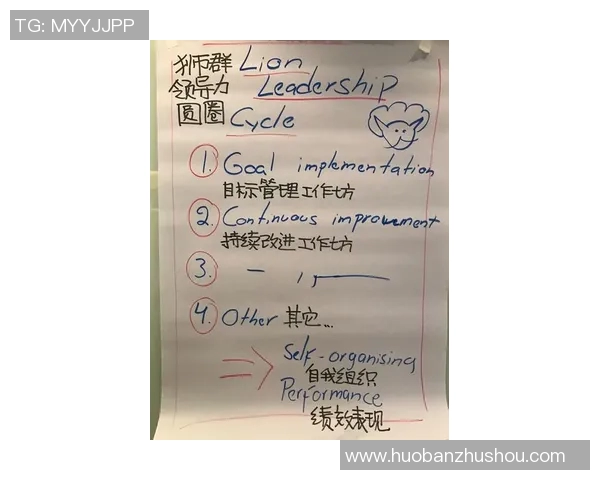 TG: MYYJJPP
狮群 Lion
领导力 Leadership
圆圈 Cycle
1. Goal implementation
目标管理工作坊
2. Continuous improvement
持续改进工作坊
3. — , ,
4. Other 其它...
=> Self-organising
自我组织
Performance
绩效表现
www.huobanzhushou.com